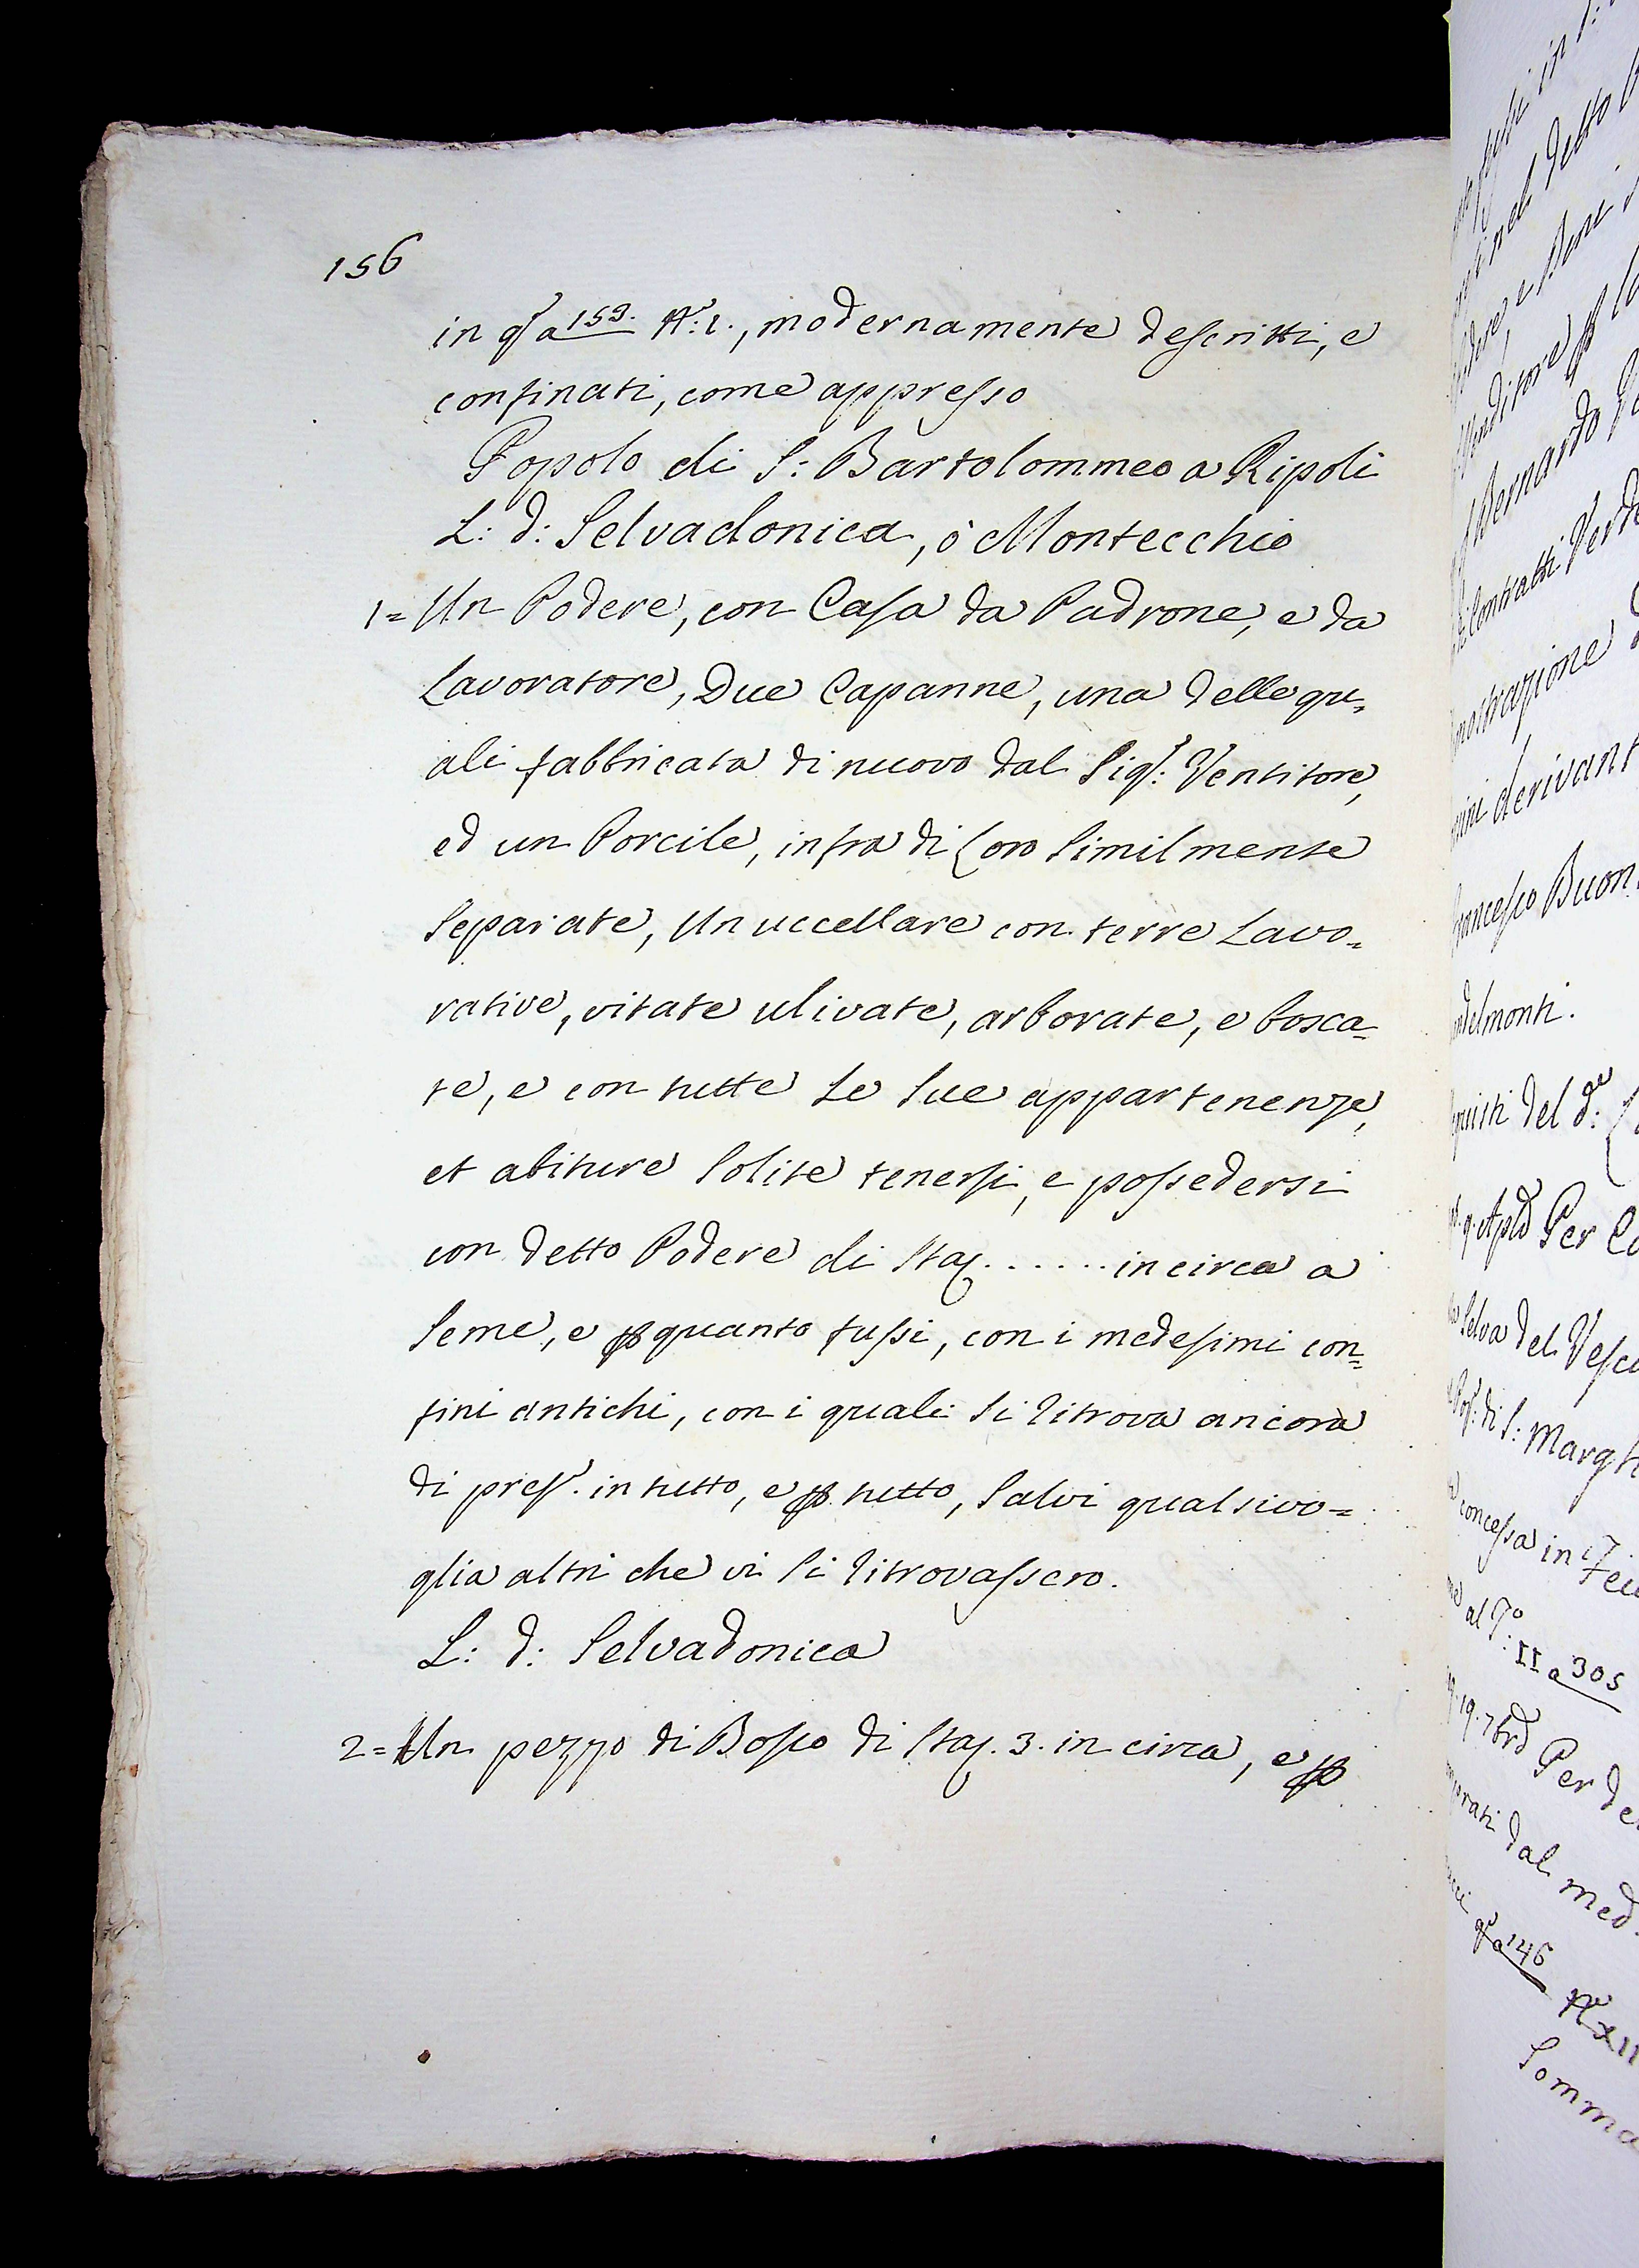 156
in qo a 159. No: 1., modernamente descritti, e
confinati, come appresso
Popolo di S: Bartolommeo a Ripoli
L: d: Selvadonica, ò Montecchio
1= Un Podere, con Casa da Padrone, e da
Lavoratore, Due Capanne, una delle qu=
ali fabbricata di nuovo dal Sigr: Ventitore,
ed un Porcile, infra di Loro Similmente
Separate, Un uccellare con terre Lavo=
rative, vitate ulivate, arborate, e bosca=
te, e con tutte Le Sue appartenenze,
et abiture Solite tenersi, e possedersi
con detto Podere di Staj. . . . . . in circa a
Seme, e p quanto fussi, con i medesimi con=
fini antichi, con i quali Si ritrova ancora
di pres. in tutto, e p tutto, Salvi qualsivo=
glia altri che vi Si ritrovassero.
L: d: Selvadonica
2= Un pezzo di Bosco di Staj. 3. in circa, e p
detto
Bernardo
Contratti
derivant
Francesco Buon
delmonti.
del d:
Per
Selva del Vesco
di S: Margh
concessa in
al To: II a 305
19. 7bre Per
dal med.
a 146 No XII
Somma